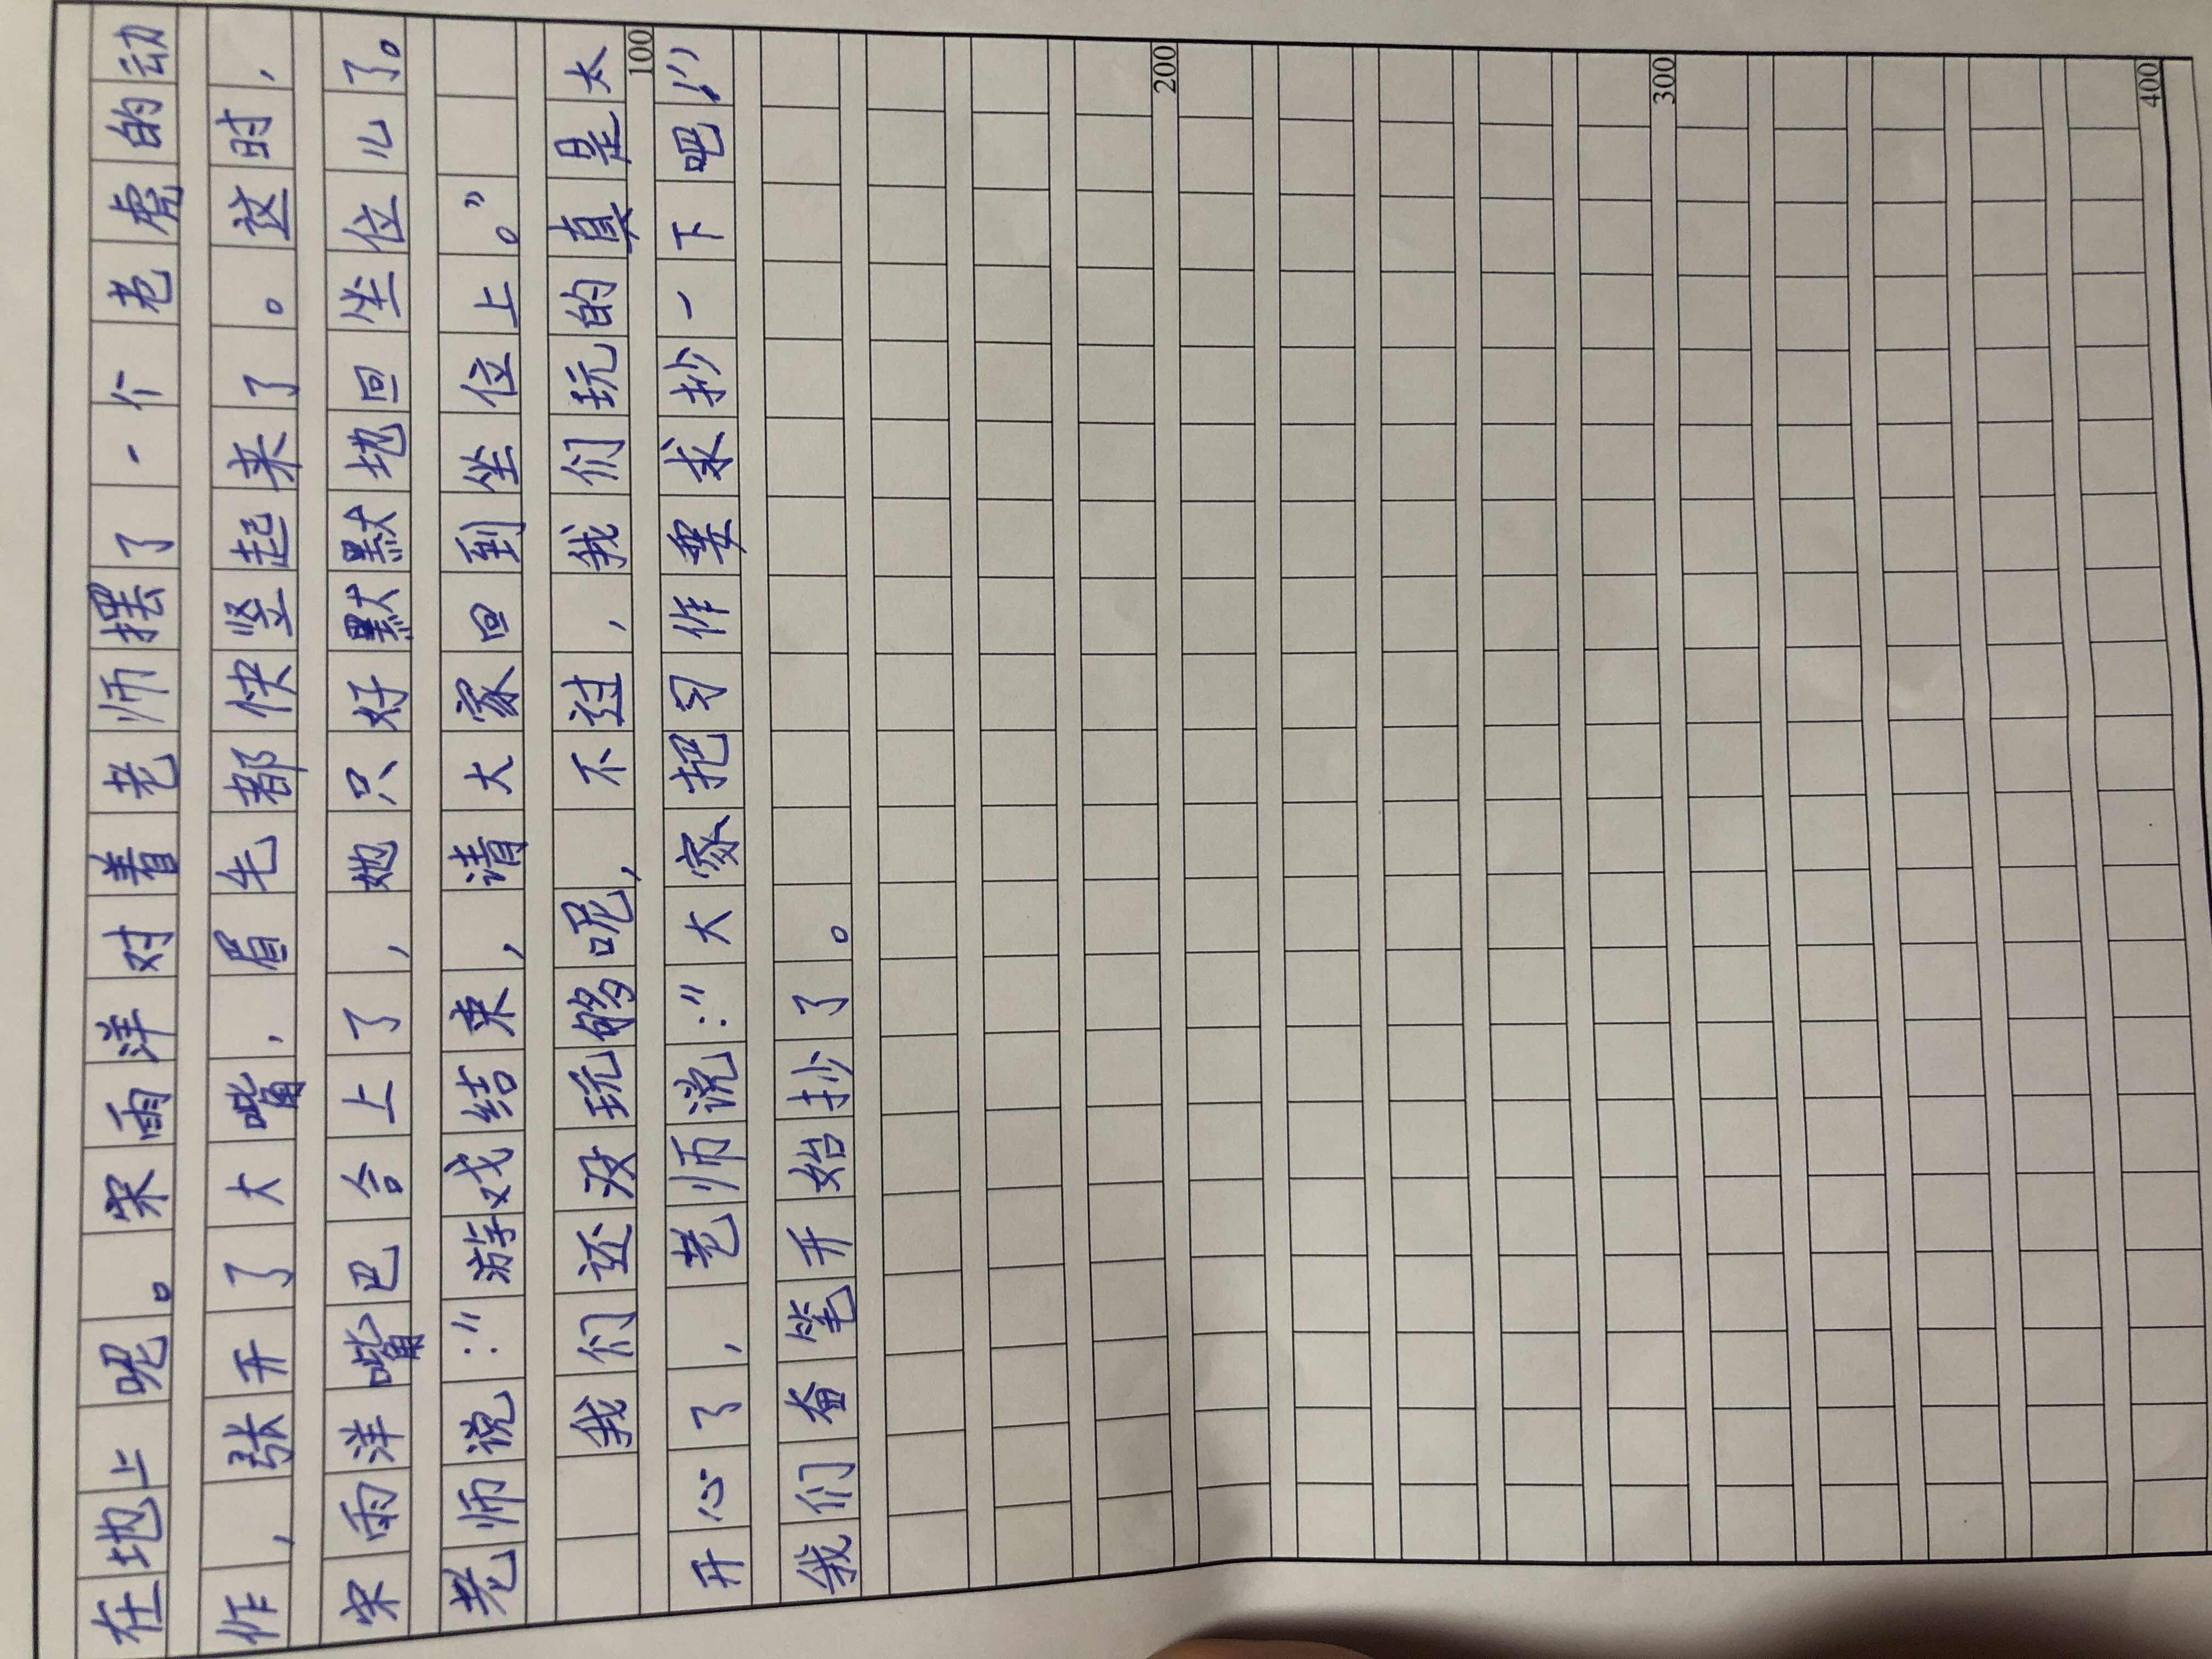 在地上呢。宋雨洋对着老师摆了一个老虎的动
作，张开了大嘴，眉毛都快竖起来了。这时，
宋雨洋嘴巴合上了，她只好默默地回坐位儿了。
老师说："游戏结束，请大家回到坐位上。"
我们还没玩够呢，不过，我们玩的真是太
100
开心了，老师说："大家把习作要求抄一下吧！"
我们奋笔开始抄了。
200
300
400